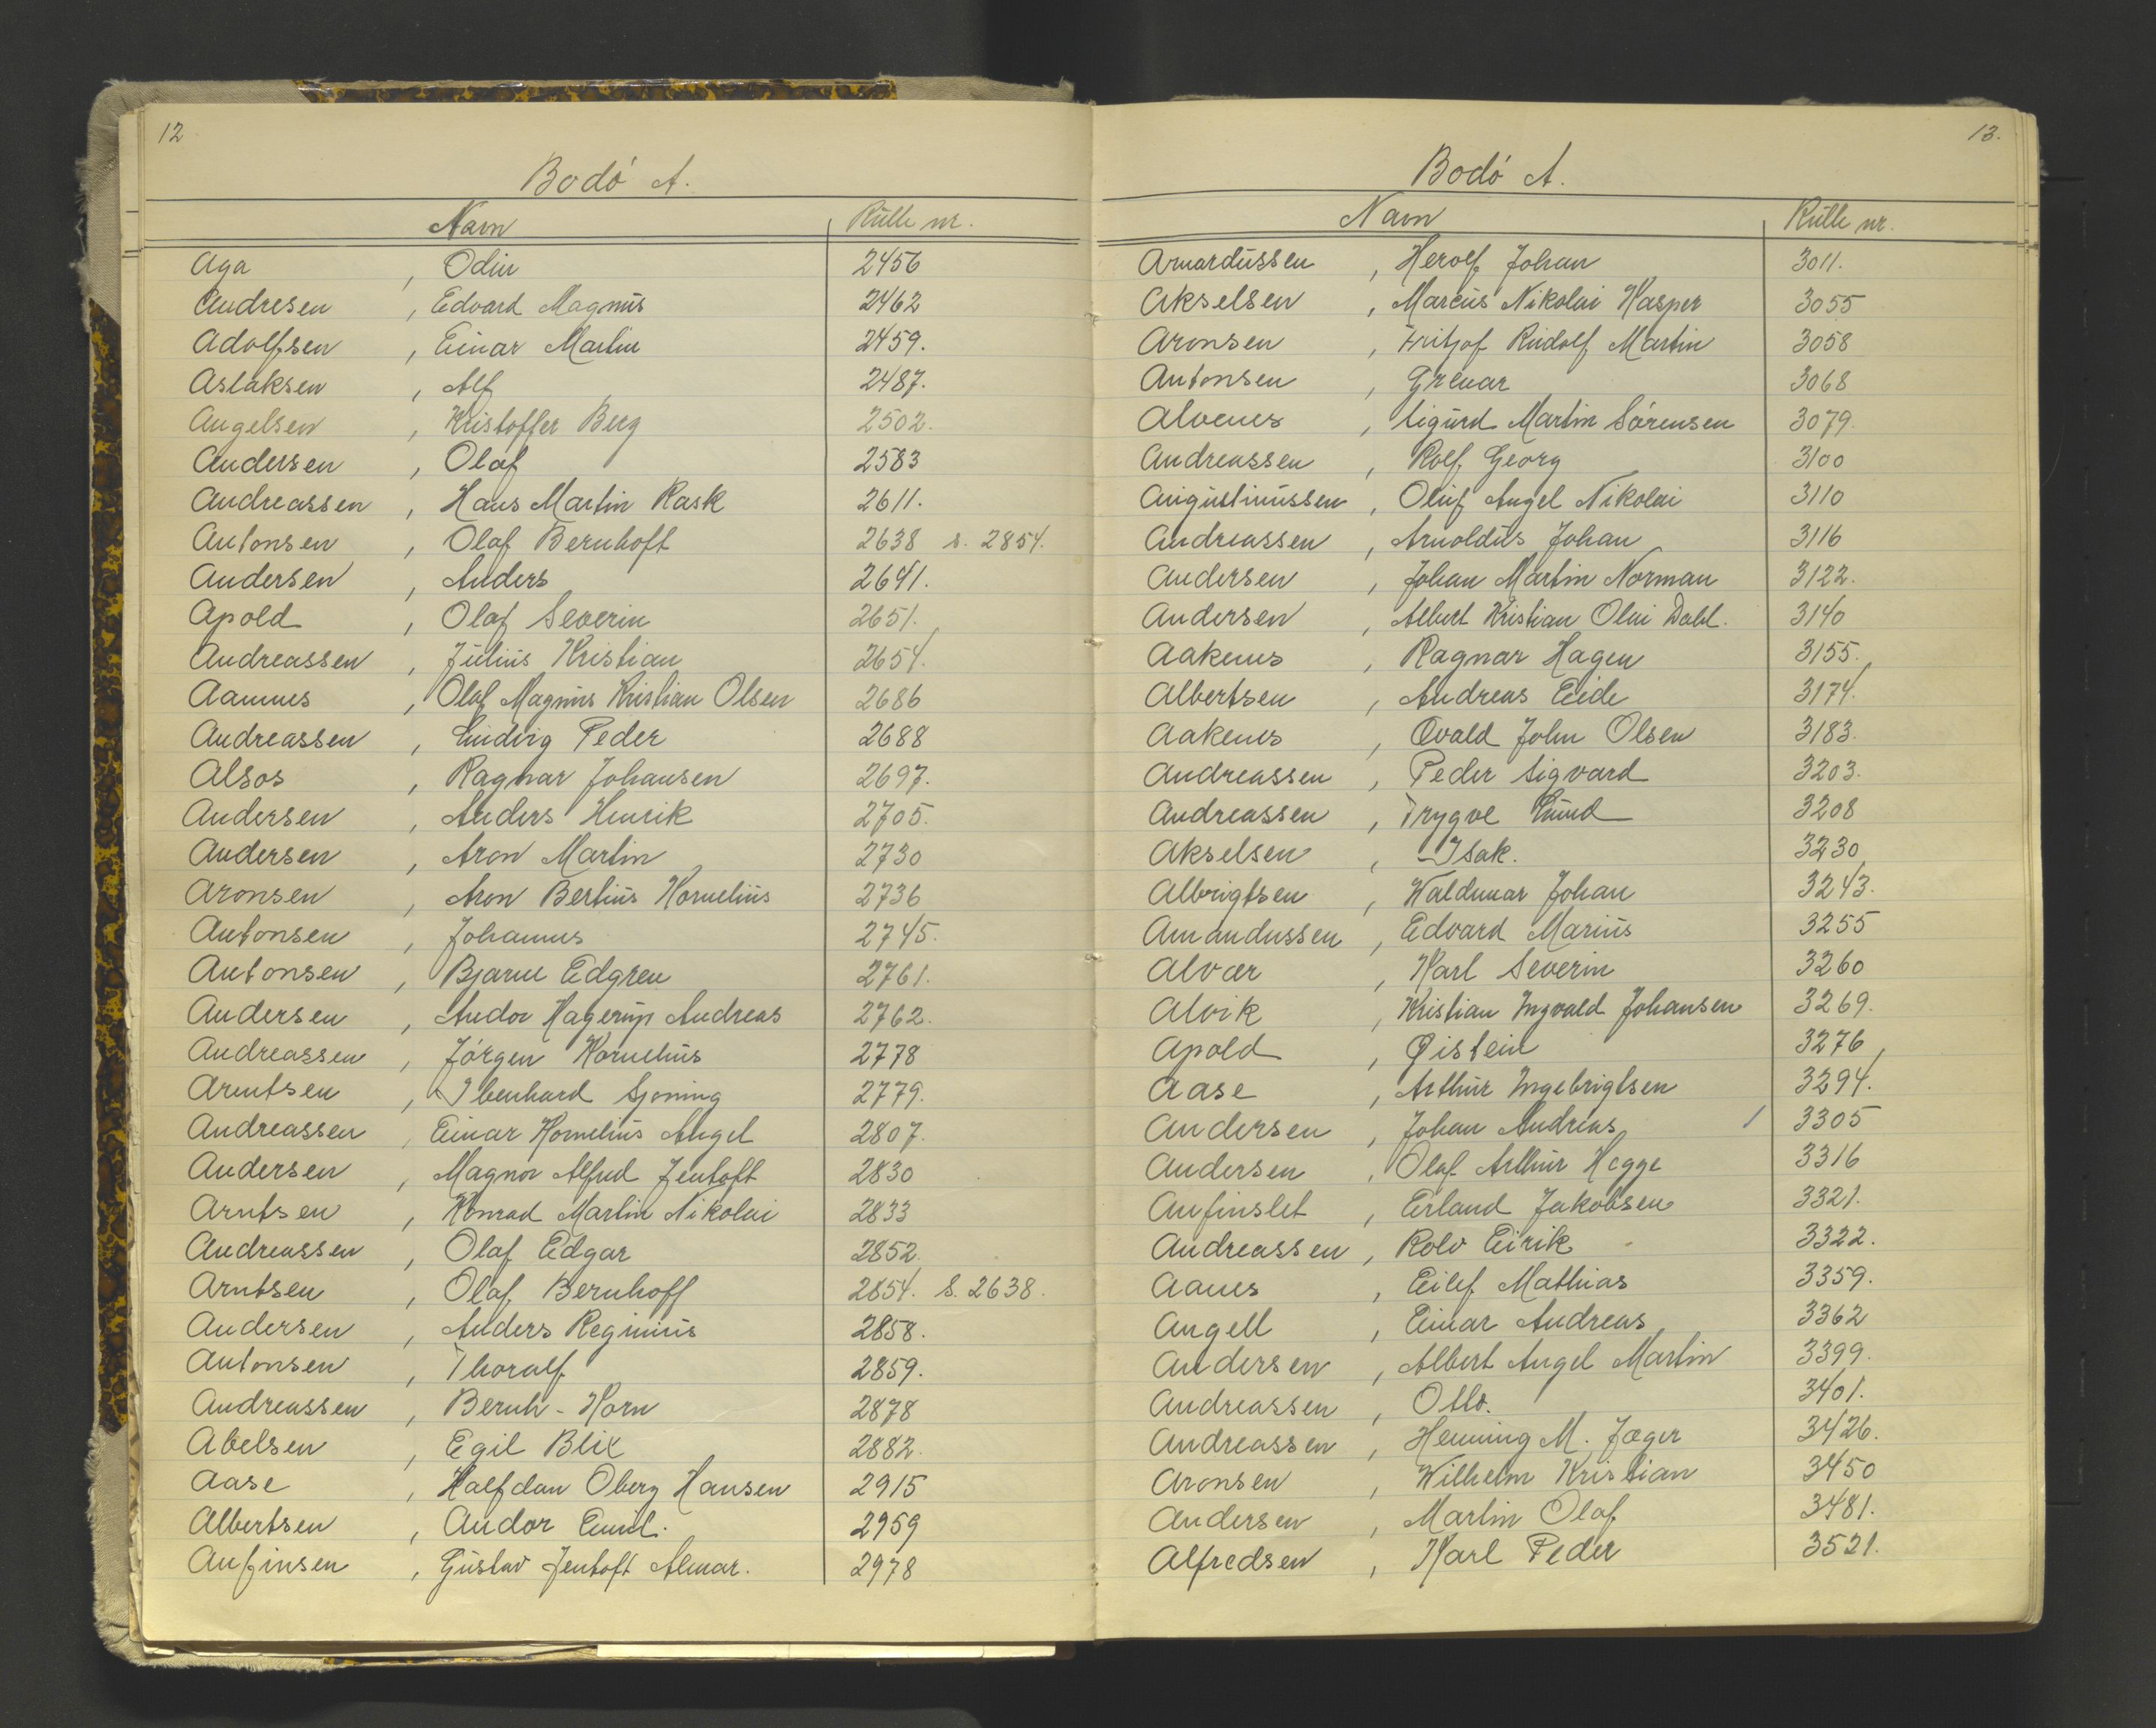 12
Bodó A.
Navn Rulle nr.
Aga , Odin 2456
Andresen , Edvard Magnus 2462
Adolfsen , Einar Martin 2459.
Aslaksen , Alf 2487.
Angelsen , Kristoffer Berg 2502.
Andersen , Olaf 2583
Andreassen , Hans Martin Rask 2611.
Antonsen , Olaf Bernhoft 2638 s. 2854.
Andersen , Anders 2641.
Apold , Olaf Severin 2651.
Andreassen , Julius Kristian 2654.
Aamnes , Olaf Magnus Kristian Olsen 2686
Andreassen , Ludvig Peder 2688
Alsos , Ragnar Johansen 2697.
Andersen , Anders Henrik 2705.
Andersen , Aron Martin 2730
Aronsen , Aron Bertius Kornelius 2736
Antonsen , Johannes 2745.
Antonsen , Bjarne Edgren 2761.
Andersen , Andor Hagerup Andreas 2762.
Andreassen , Jórgen Kornelius 2778
Arentsen , Ibenhard Sjoning 2779.
Andreassen , Einar Kornelius Angel 2807.
Andersen , Magnor Alfred Jentoft 2830
Arntsen , Konrad Martin Nikolai 2833
Andreassen , Olaf Edgar 2852.
Arntsen , Olaf Bernhoff 2854. s. 2638.
Andersen , Anders Reginius 2858.
Antonsen , Thoralf 2859.
Andreassen , Bernh - Horn 2878
Abelsen , Egil Blix 2882.
Aase , Halfdan Oberg Hansen 2915
Albertsen , Andor Emil. 2959
Anfinsen , Gustav Jentoft Almar. 2978
13.
Bodó A.
Navn Rulle nr.
Arnardussen , Herolf Johan 3011.
Akselsen , Marcus Nikolai Kasper 3055
Aronsen , Fritjof Rudolf Martin 3058
Antonsen , Grenar 3068
Alvenes , Sigurd Martin Sórensen 3079.
Andreassen , Rolf Georg 3100
Augustinussen , Oluf Angel Nikolai 3110
Andreassen , Arnoldus Johan 3116
Andersen , Johan Martin Norman 3122.
Andersen , Albert Kristian Olai Dahl. 3140
Aakenes , Ragnar Hagen 3155.
Albertsen , Andreas Eide 3174.
Aakenes , Evald John Olsen 3183.
Andreassen , Peder Sigvard 3203.
Andreassen , Trygve Lund 3208
Akselsen , Isak. 3230
Albrigtsen , Waldemar Johan 3243.
Amandussen , Edvard Marius 3255
Alvær , Karl Severin 3260
Alvik , Kristian Ingvald Johansen 3269.
Apold , Øistein 3276
Aase , Arthur Ingebrigtsen 3294.
Andersen , Johan Andreas / 3305
Andersen , Olaf Arthur Hegge 3316
Anfinslet , Erland Jakobsen 3321.
Andreassen , Rolv Eirik 3322.
Aanes , Eilef Mathias 3359.
Angell , Einar Andreas 3362
Andersen , Albert Angel Martin 3399.
Andreassen , Otto. 3401.
Andreassen , Henning M. Jæger 3426.
Aronsen , Wilhelm Kristian 3450
Andersen , Martin Olaf 3481.
Alfredsen , Karl Peder 3521.